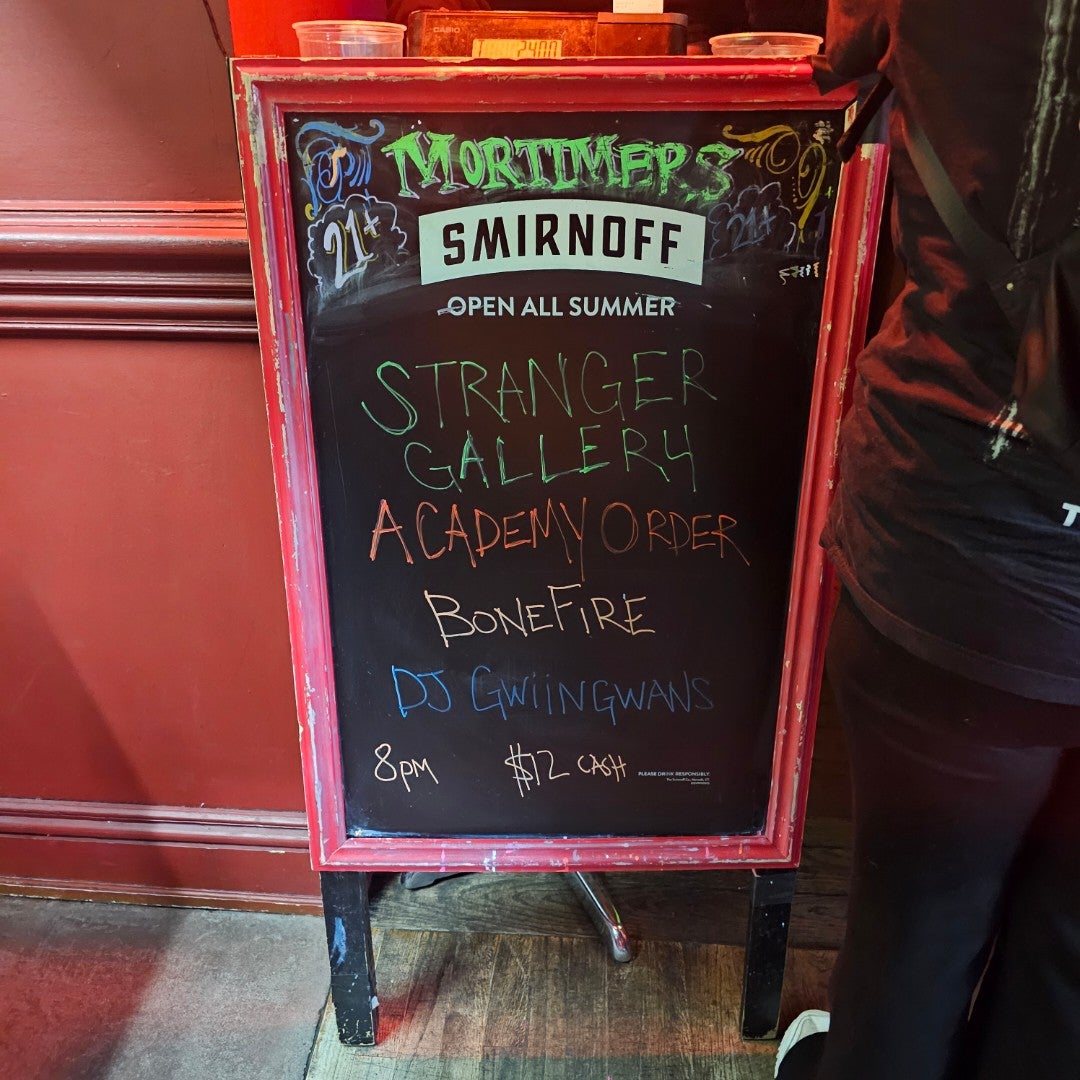 CASIO
MORTIMERS
21+
21+
SMIRNOFF
OPEN ALL SUMMER
STRANGER
GALLERY
ACADEMY ORDER
BONEFIRE
DJ GWIINGWANS
8PM $12 CASH
PLEASE DRINK RESPONSIBLY.